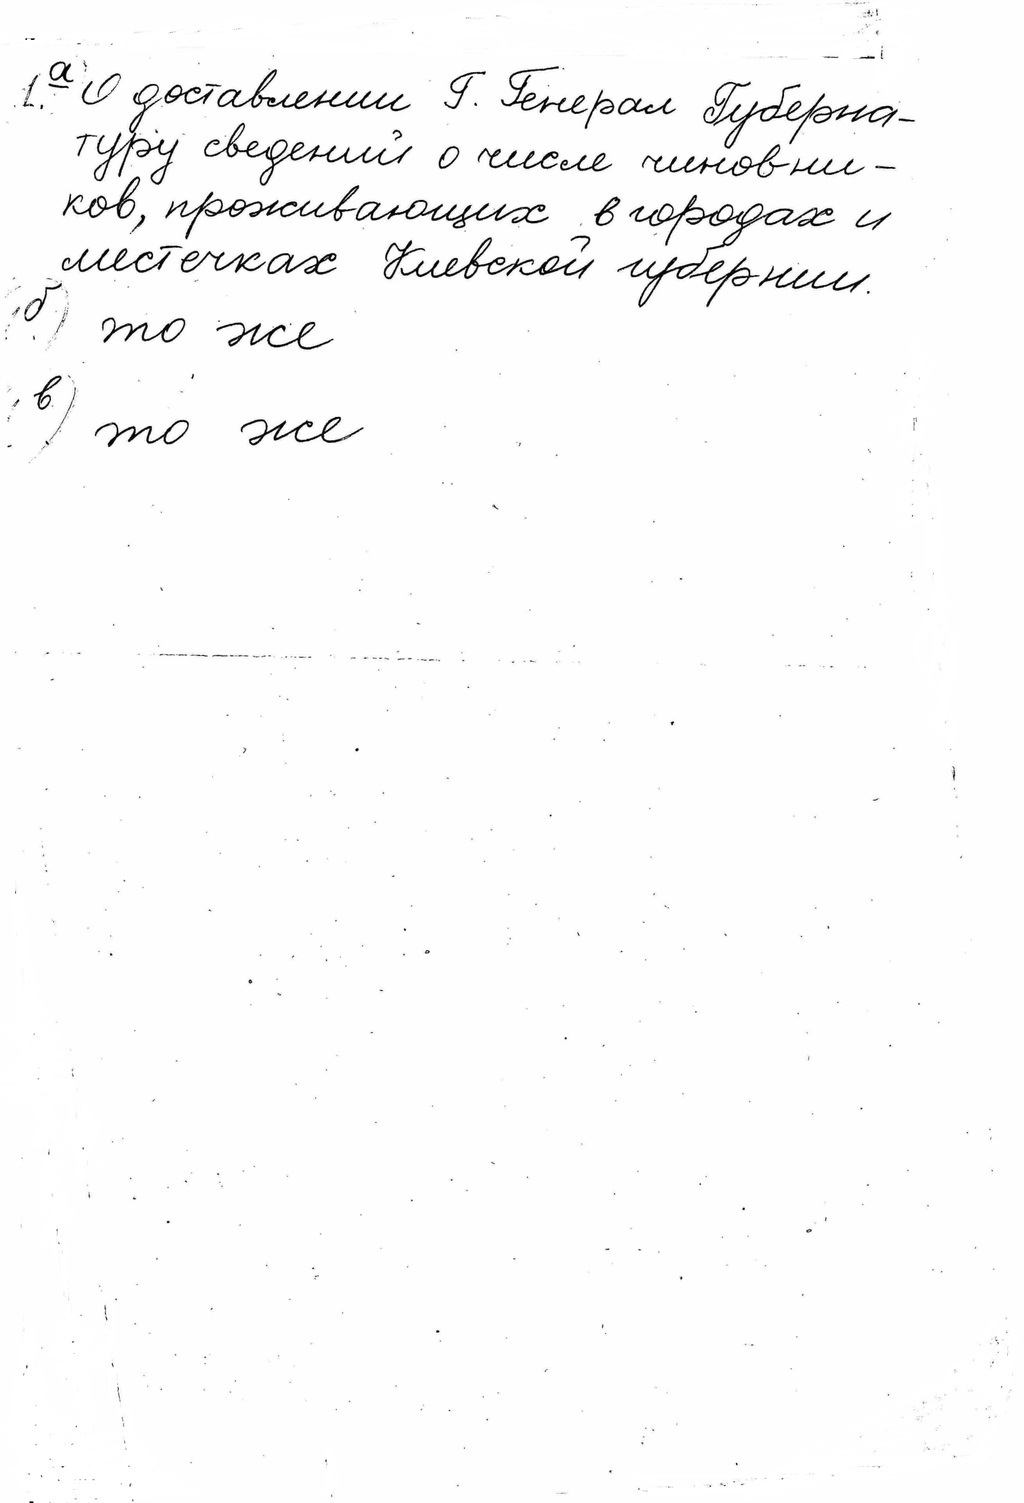 1.а О доставлении Г. Генерал Губерна-
туру сведений о числе чиновни-
ков, проживающих в городах и
местечках Киевской губернии.
б) то же
в) то же